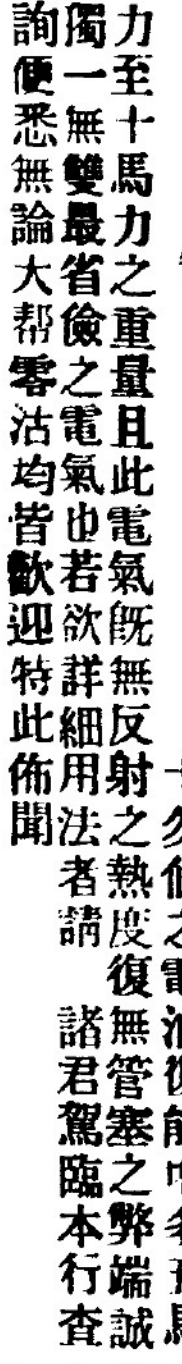 力至十馬力之重量且此電氣既無反射之熱度復無管塞之弊端誠
獨一無雙最省儉之電氣也若欲詳細用法者請 諸君駕臨本行查
詢便悉無論大帮零沽均皆歡迎特此佈聞